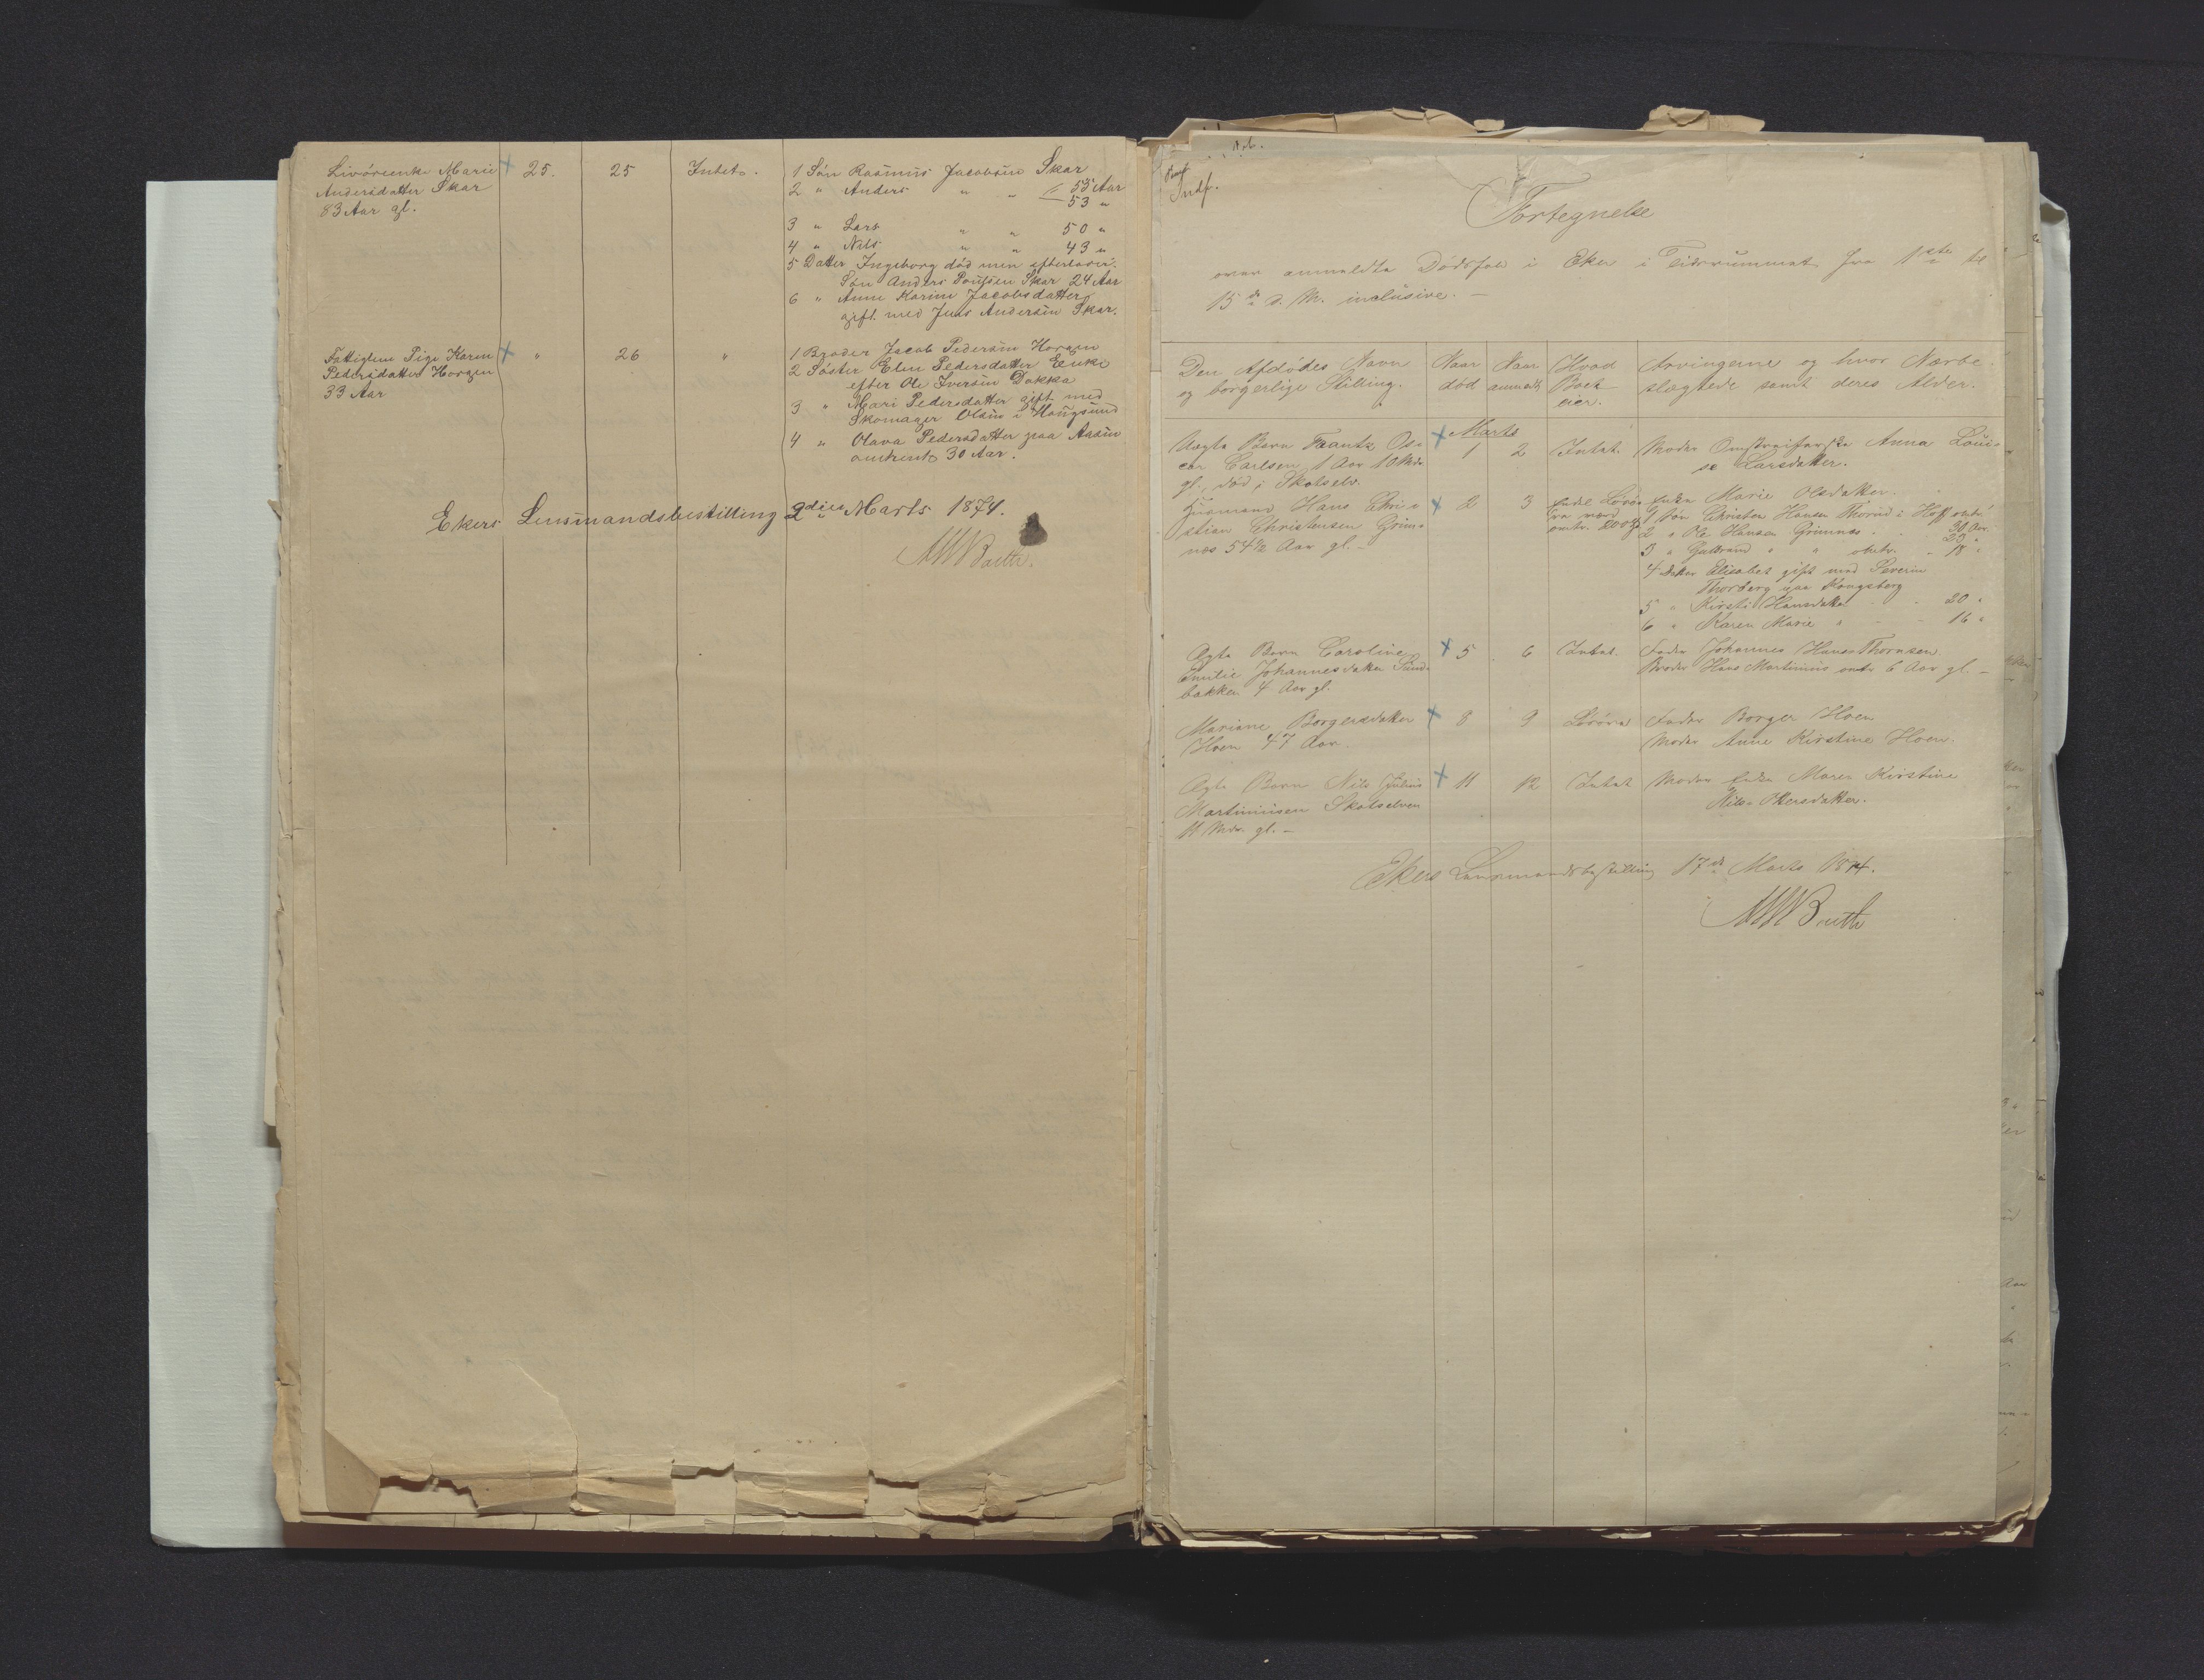 Livøreenke Marie + 25. 25 Intet. 1 Søn Rasmus Jacobsen Skar
Andersdatter Skar 2 " Anders " " 55 Aar
83 Aar gl. 53 "
3 " Lars " " 50 "
4 " Nils " " 43 "
5 Datter Ingeborg død men efterladt
Søn Anders Poulsen Skar 24 Aar
6 " Anne Karine Jacobsdatter
gift med Jens Andersen Skar.
Fattiglem Pige Karen + " 26 " 1 Broder Jacob Pedersen Horgen
Pedersdatter Horgen 2 Søster Elen Pedersdatter Enke
33 Aar efter Ole Iversen Dokka
3 " Mari Pedersdatter gift med
Skomager Olsen i Hougsund
4 " Olava Pedersdatter paa Aasen
omtrent 30 Aar.
Ekers Lensmandsbestilling 2den Marts 1874.
Indf.
Fortegnelse
over anmeldte Dødsfald i Eker i Tidsrummet fra 1ste til
15de d. M. inclusive. —
Den Afdødes Navn Naar Naar Hvad Arvingerne og hvor Nærbe-
og borgerlige Stilling. død anmeldt Boet slægtede samt deres Alder.
eier.
Marts
Uægte Barn Frantz Os- + 1 2 Intet. Moder Omstreiferske Anna Loui-
car Carlsen 1 Aar 10 Mdr. se Larsdatter.
gl., død i Skotselv.
Husmand Hans Chri- + 2 3 Endel Løsø- Enke Marie Olsdatter.
stian Christensen Grim- re værd 1 Søn Christen Hansen Thorud i Hoff omtr.
næs 54½ Aar gl. — omtr. 200 30 Aar.
2 " Ole Hansen Grimnæs 23 "
3 " Gulbrand " " omtr. 18 "
4 Datter Elisabet gift med Severin
Thorberg paa Kongsberg
5 " Kirsti Hansdatter 20 "
6 " Karen Marie " 16 "
Ægte Barn Caroline + 5 6 Intet. Fader Johannes Hansen Thornsen
Emilie Johannesdatter Sund- Broder Hans Martinius omtr 6 Aar gl. —
bakken 4 Aar gl.
Mariane Borgersdatter + 8 9 Løsøre Fader Borger Hoen
Hoen 47 Aar. Moder Anne Kirstine Hoen.
Ægte Barn Nils Julius + 11 12 Intet Moder Enke Maren Kirstine
Martiniusen Skotselven Nils Ottersdatter.
11 Mdr. gl. —
Ekers Lensmandsbestilling 17de Marts 1874.